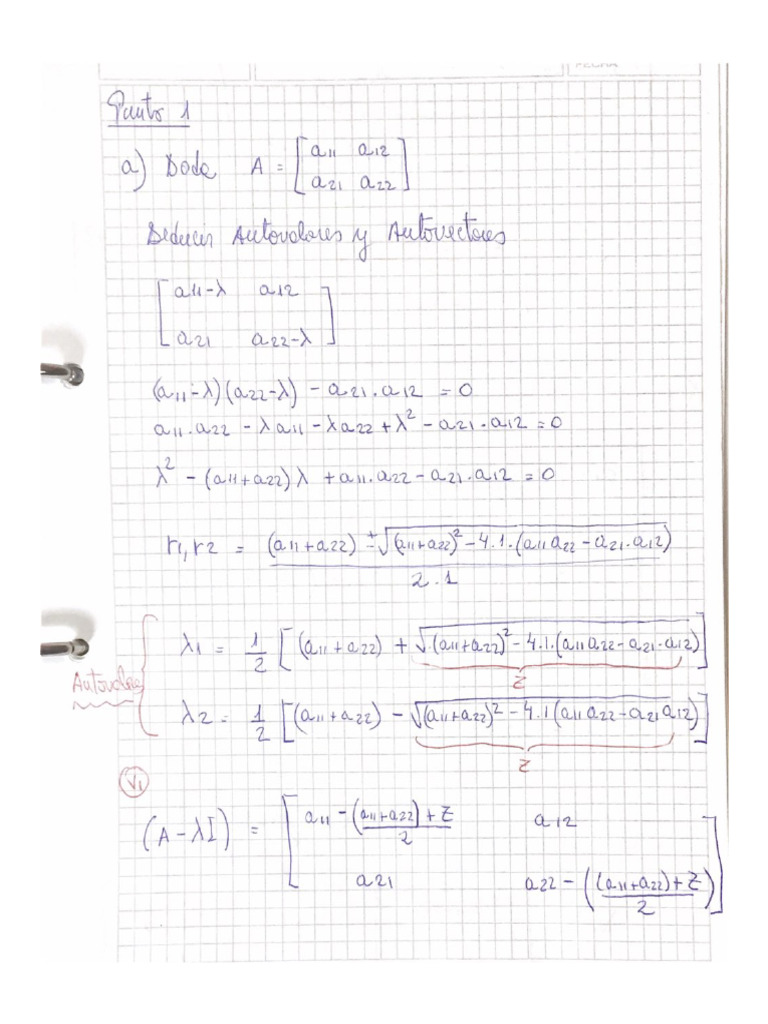 FECHA
Punto 1
a) Dada A = [a11 a12
a21 a22]
Deducir Autovalores y Autovectores
[a11-λ a12
a21 a22-λ]
(a11-λ)(a22-λ) - a21.a12 = 0
a11.a22 - λa11 - λa22 + λ² - a21.a12 = 0
λ² - (a11+a22)λ + a11.a22 - a21.a12 = 0
r1,r2 = (a11+a22) ± √(a11+a22)² - 4.1.(a11a22 - a21.a12)
2.1
λ1 = 1/2 [(a11+a22) + √(a11+a22)² - 4.1.(a11a22 - a21.a12)]
z
Autovalores
λ2 = 1/2 [(a11+a22) - √(a11+a22)² - 4.1(a11a22 - a21a12)]
z
V1
(A-λI) = [a11 - (a11+a22)+z/2 a12
a21 a22 - ((a11+a22)+z/2)]